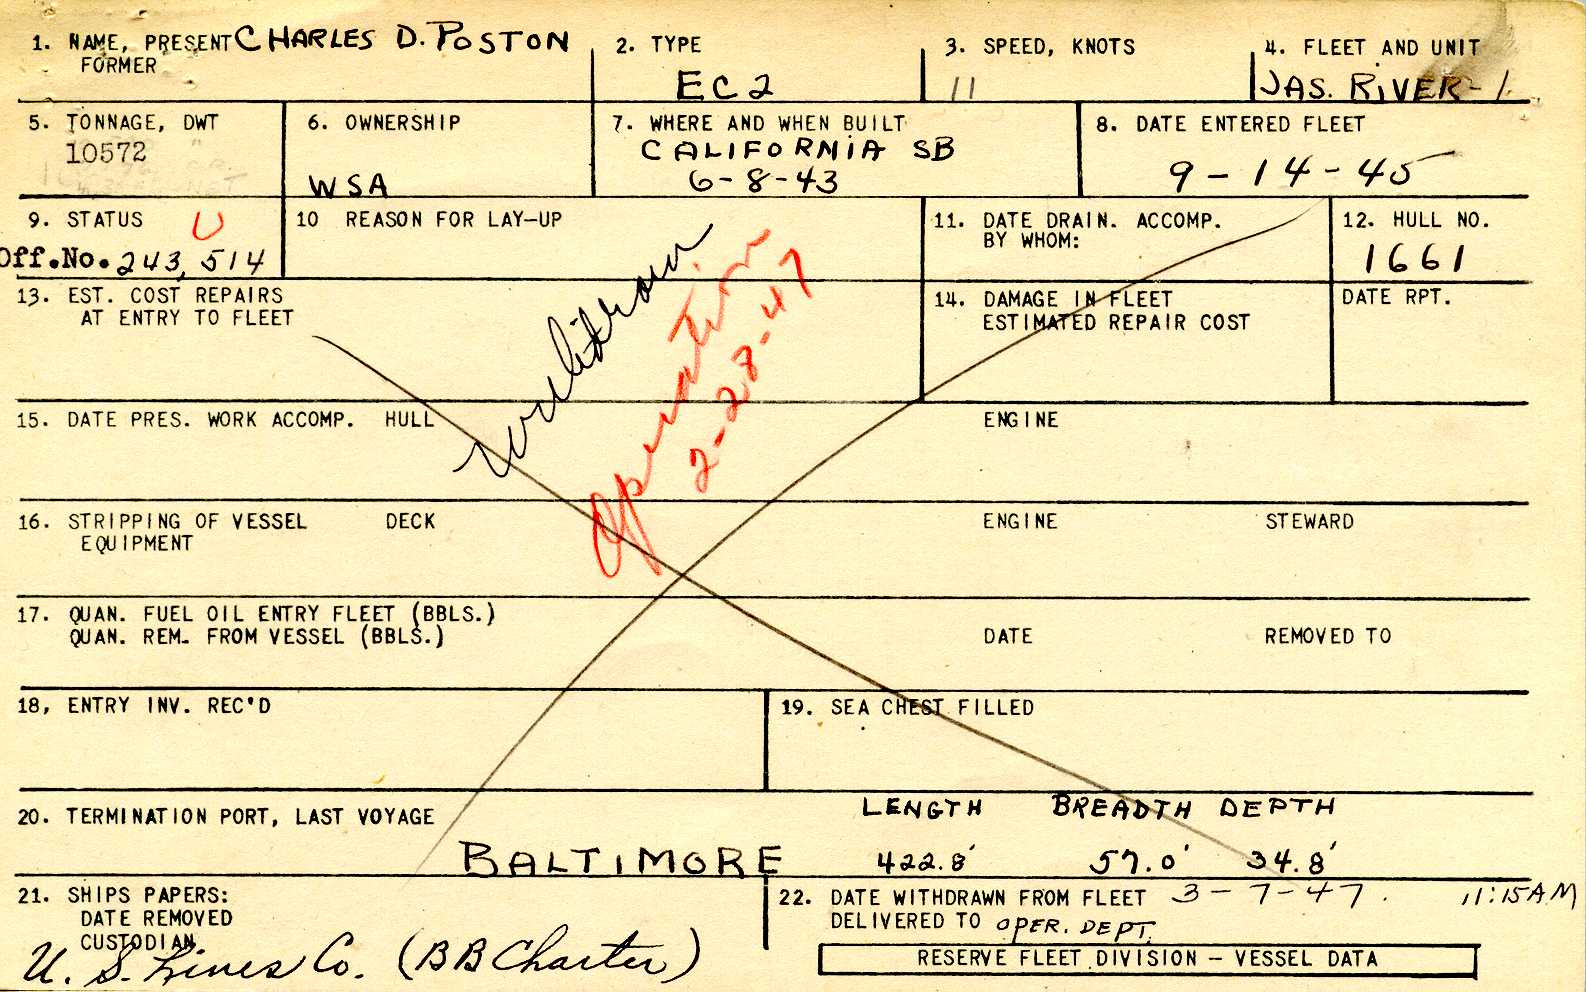 1. NAME, PRESENT CHARLES D. POSTON
FORMER
2. TYPE
EC2
3. SPEED, KNOTS
11
4. FLEET AND UNIT
JAS. RIVER - 1
5. TONNAGE, DWT
10572
6. OWNERSHIP
WSA
7. WHERE AND WHEN BUILT
CALIFORNIA SB
6-8-43
8. DATE ENTERED FLEET
9-14-45
9. STATUS U
Off.No. 243,514
10 REASON FOR LAY-UP
11. DATE DRAIN. ACCOMP.
BY WHOM:
12. HULL NO.
1661
13. EST. COST REPAIRS
AT ENTRY TO FLEET
Withdrawn
Operation
2-28-47
14. DAMAGE IN FLEET
ESTIMATED REPAIR COST
DATE RPT.
15. DATE PRES. WORK ACCOMP. HULL
ENGINE
16. STRIPPING OF VESSEL DECK ENGINE STEWARD
EQUIPMENT
17. QUAN. FUEL OIL ENTRY FLEET (BBLS.)
QUAN. REM. FROM VESSEL (BBLS.) DATE REMOVED TO
18, ENTRY INV. REC'D
19. SEA CHEST FILLED
20. TERMINATION PORT, LAST VOYAGE
BALTIMORE
LENGTH BREADTH DEPTH
422.8' 57.0' 34.8'
21. SHIPS PAPERS:
DATE REMOVED
CUSTODIAN
U. S. Lines Co. (BB Charter)
22. DATE WITHDRAWN FROM FLEET 3-7-47. 11:15 AM
DELIVERED TO OPER. DEPT.
RESERVE FLEET DIVISION - VESSEL DATA